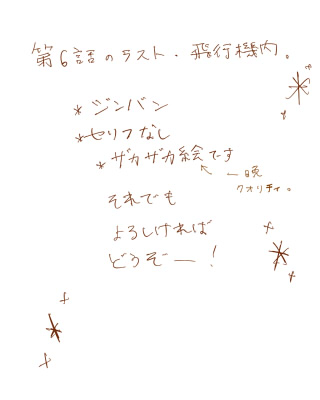 第6話のラスト・飛行機内。
*ジンバン
*セリフなし
*ザカザカ絵です
一晩
クオリティ。
それでも
よろしければ
どうぞー!